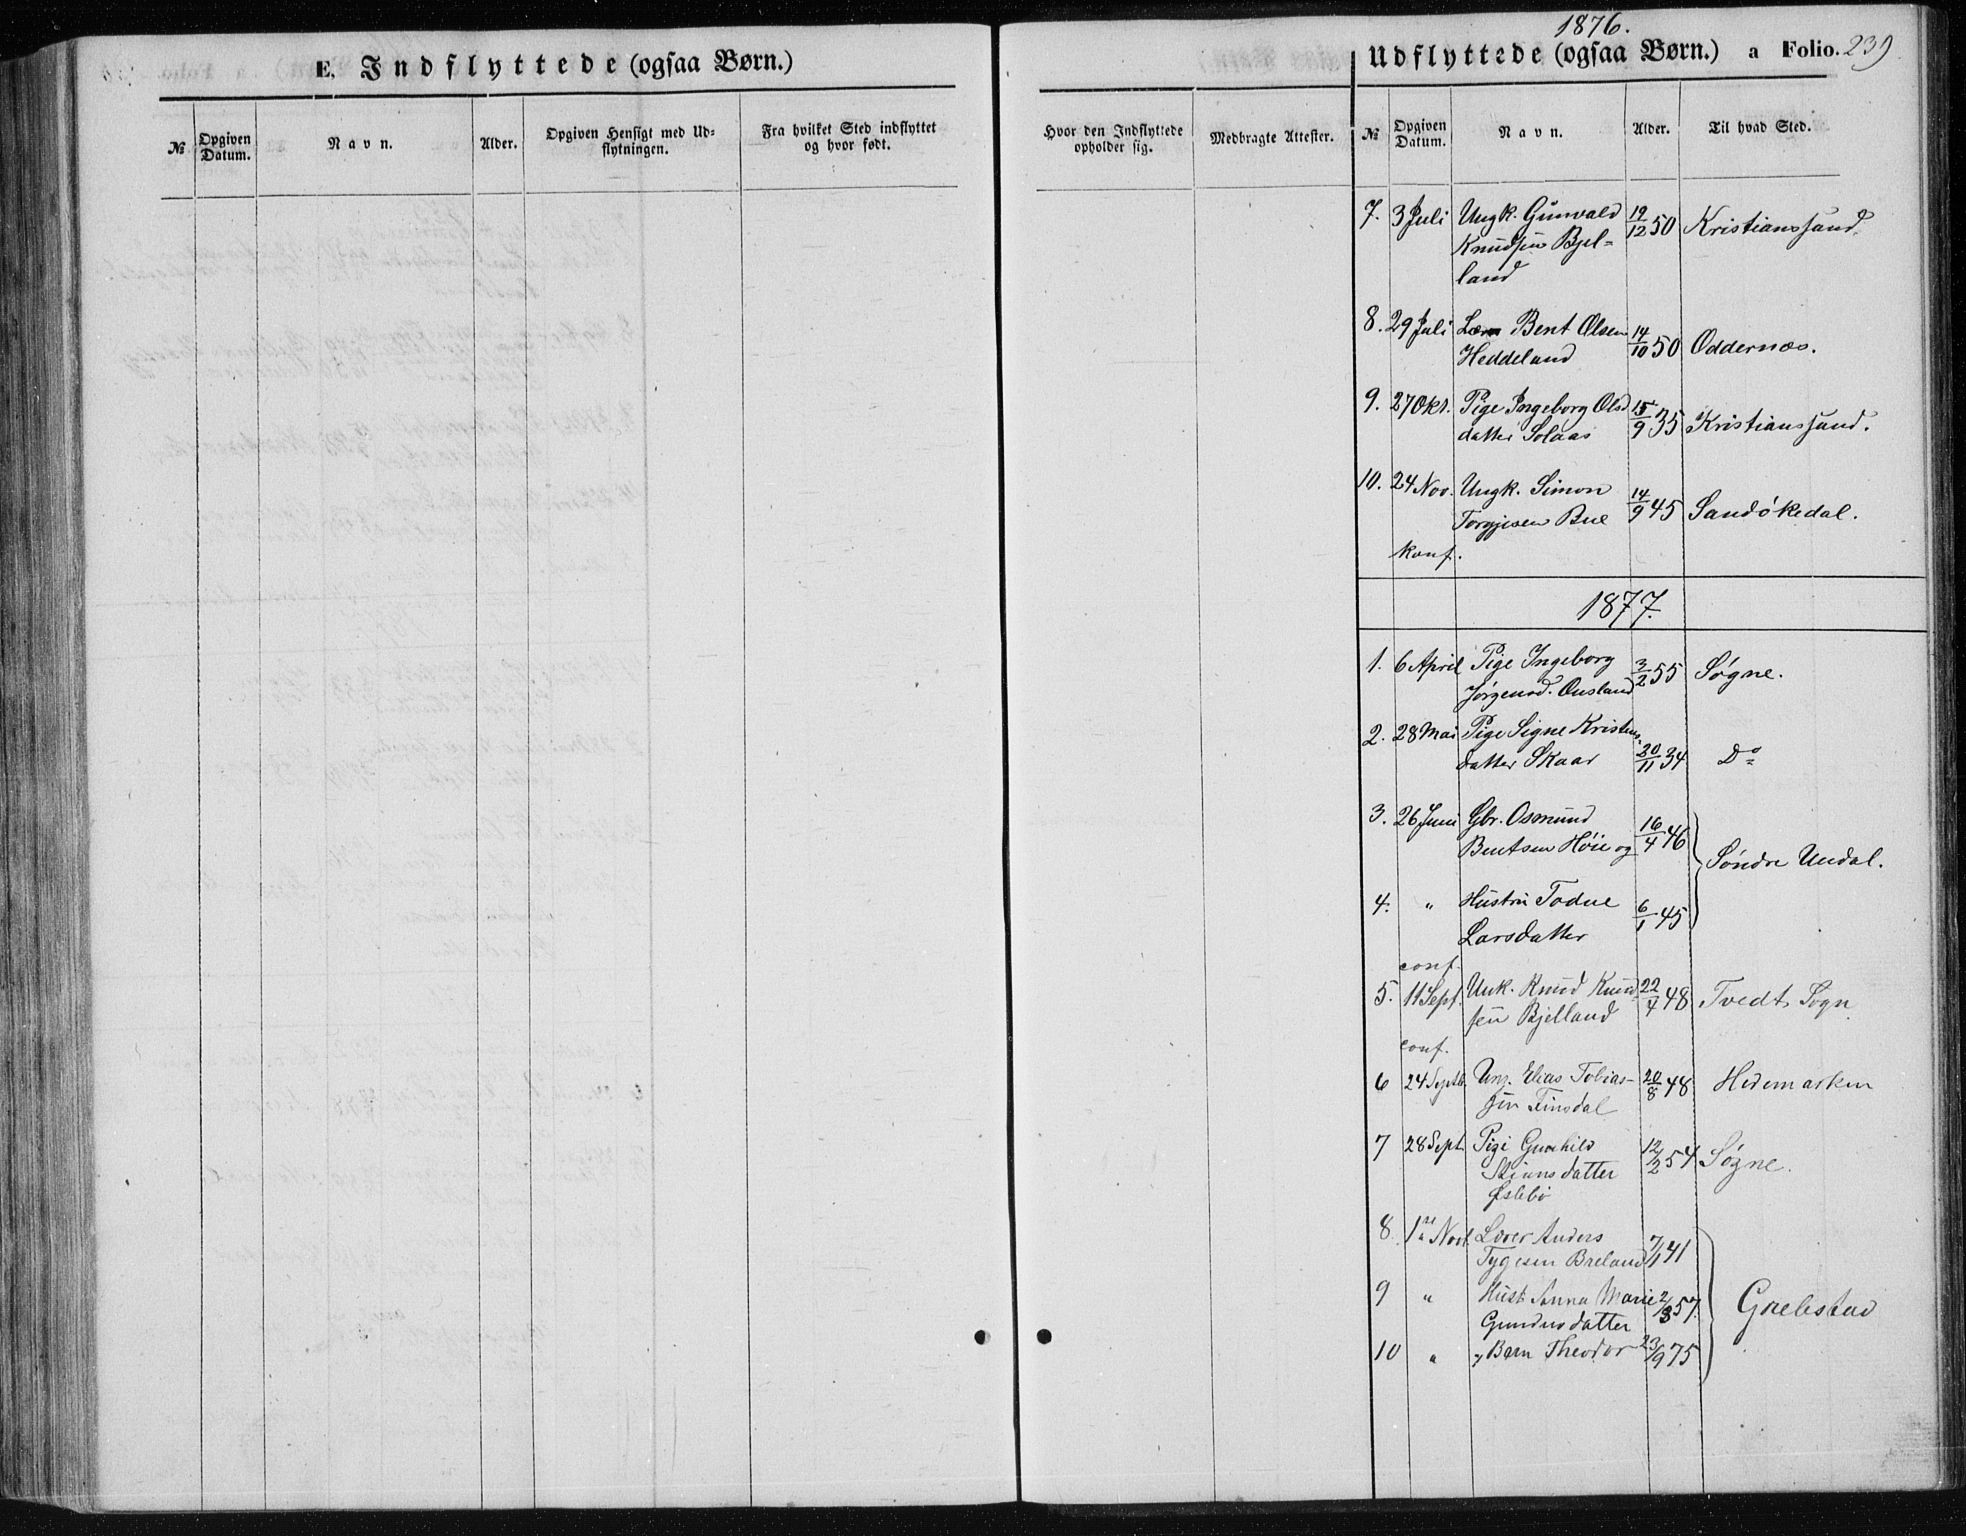 1876.
E. Indflyttede (ogsaa Børn.)
Udflyttede (ogsaa Børn.) a Folio. 239
№ Opgiven Datum. Navn. Alder. Opgiven Hensigt med Udflytningen. Fra hvilket Sted indflyttet og hvor født.
Hvor den Indflyttede opholder sig. Medbragte Attester. № Opgiven Datum. Navn. Alder. Til hvad Sted.
7. 3 Juli Ungk. Gunvald 19/12 50 Kristianssand.
Knudsen Bjel-
land
8. 29 Juli Bent Olsen 14/10 50 Oddernæs.
Heddeland
9. 27 Okt. Pige Ingeborg Ols 15/9 35 Kristianssand.
datter Solaas
10. 24 Nov. Ungk. Simon 14/9 45 Sandökedal.
Torgjesen Bue
konf.
1877.
1. 6 April Pige Ingeborg 3/2 55 Søgne.
Jørgensd. Ousland
2. 28 Mai Pige Signe Kristens
datter Skaar 20/11 34 Do
3. 26 Juni Gbr. Osmund 16/4 46
Bentsen Höie og
Söndre Undal.
4. " Hustru Todne 6/1 45
Larsdatter
conf.
5. 11 Sept. Unk. Knud Knud 22/4 48 Tvedt Sogn
sen Bjelland
conf.
6 24 Septb. Ung. Elias Tobias- 20/8 48 Hedemarken
sen Finsdal
7 28 Sept. Pige Gunhild 12/2 54 Søgne.
Stiansdatter
Øslebö
8 1 Novb. Lærer Anders 7/1 41
Tygesen Breland
9 " Hust. Anna Marie 2/8 57.
Gundersdatter
Grebstad
10 " Barn Theodor 23/9 75